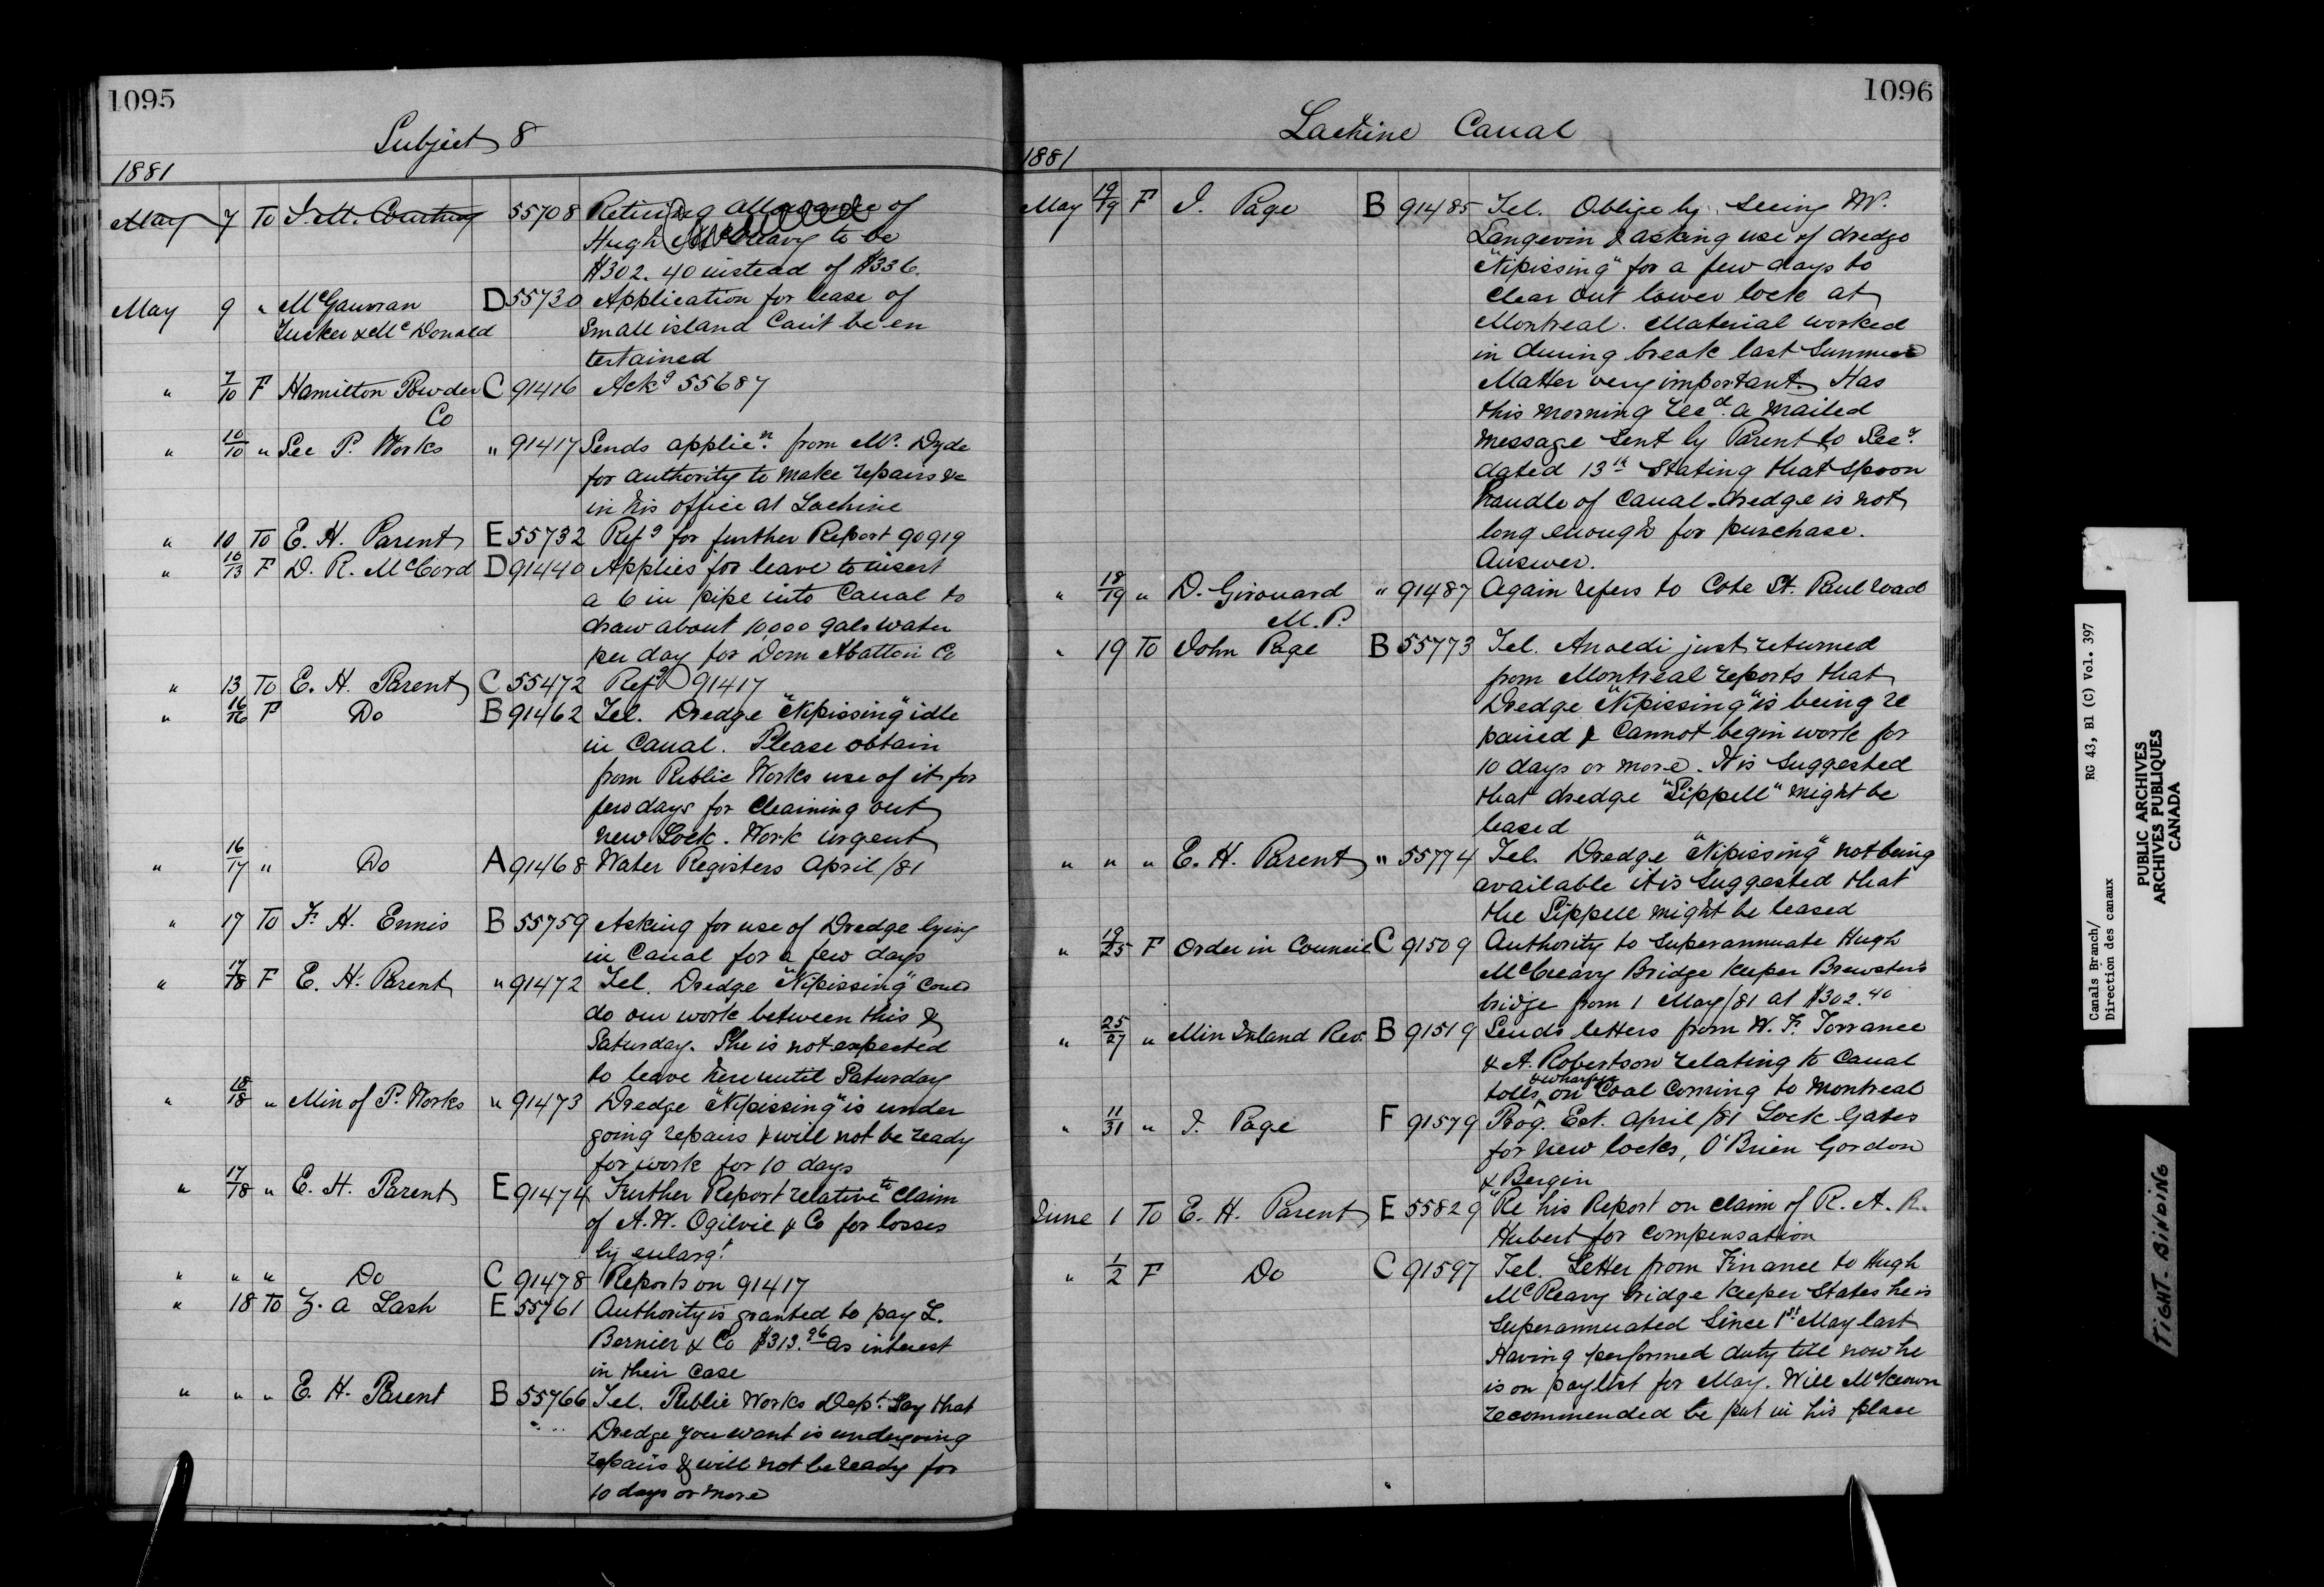 1095
Subject 8
1881
May 7 To J. M. Courtney 55708 Retiring allowance of
Cancelled
Hugh McCreavy to be
$302.40 instead of $336.
May 9 " McGauvran D 55730 Application for lease of
Tucker & McDonald small island Can't be en
tertained
" 7/10 F Hamilton Powder C 91416 Ackg 55687
Co
" 10/10 " Sec P. Works " 91417 Sends applicn. from Mr. Dyde
for authority to make repairs &c
in his office at Lachine
" 10 To E. H. Parent E 55732 Refg for further Report 90919
" 10/13 F D. R. McCord D 91440 Applies for leave to insert
a 6 in pipe into Canal to
draw about 10,000 gals water
per day for Dom Abattoir Co
" 13 To E. H. Parent C 55472 Refg 91417
" 16/16 F Do B 91462 Tel. Dredge "Nipissing" idle
in Canal. Please obtain
from Public Works use of it for
few days for cleaning out
new Lock. Work urgent
" 16/17 " Do A 91468 Water Registers April/81
" 17 To F. H. Ennis B 55759 Asking for use of Dredge lying
in Canal for a few days
" 17/18 F E. H. Parent " 91472 Tel. Dredge "Nipissing" could
do our work between this &
Saturday. She is not expected
to leave here until Saturday
" 18/18 " Min of P. Works " 91473 Dredge "Nipissing" is under
going repairs & will not be ready
for work for 10 days
" 17/18 " E. H. Parent E 91474 Further Report relative to claim
of A. W. Ogilvie & Co for losses
by enlargt.
" " " Do C 91478 Reports on 91417
" 18 To Z. A Lash E 55761 Authority is granted to pay L.
Bernier & Co $313.96 as interest
in their case
" " " E. H. Parent B 55766 Tel. Public Works Dept. Say that
Dredge you want is undergoing
repairs & will not be ready for
10 days or more
1096
Lachine Canal
1881
May 19/19 F J. Page B 91485 Tel. Oblige by seeing Mr.
Langevin & asking use of dredge
"Nipissing" for a few days to
clear out lower lock at
Montreal. Material worked
in during break last Summer
Matter very important. Has
this morning recd. a mailed
message sent by Parent to Secy.
dated 13th Stating that spoon
handle of Canal dredge is not
long enough for purchase.
Answer.
" 18/19 " D. Girouard " 91487 Again refers to Cote St. Paul road
M.P.
" 19 To John Page B 55773 Tel. Anoedi just returned
from Montreal reports that
Dredge "Nipissing" is being re
paired & Cannot begin work for
10 days or more. It is suggested
that dredge "Sippell" might be
leased
" " " E. H. Parent " 55774 Tel. Dredge "Nipissing" not being
available it is suggested that
the Sippell might be leased
" 19/25 F Order in Council C 91509 Authority to superannuate Hugh
McCreavy Bridge Keeper Brewster's
bridge from 1 May/81 at $302.40
" 25/27 " Min Inland Rev. B 91519 Sends letters from W. F. Torrance
& A. Robertson relating to Canal
& wharfage
tolls on Coal Coming to Montreal
" 11/31 " J. Page F 91579 Prog. Est. April/81 Lock Gates
for new locks, O'Brien Gordon
& Bergin
June 1 To E. H. Parent E 55829 Re his Report on claim of R. A. R.
Hubert for compensation
" 1/2 F Do C 91597 Tel. Letter from Finance to Hugh
McReavy bridge Keeper States he is
Superannuated Since 1st May last
Having performed duty till now he
is on paylist for May. Will McKeown
recommended be put in his place
Canals Branch/ RG 43, B1 (C) Vol. 397
Direction des canaux
PUBLIC ARCHIVES
ARCHIVES PUBLIQUES
CANADA
TIGHT BINDING